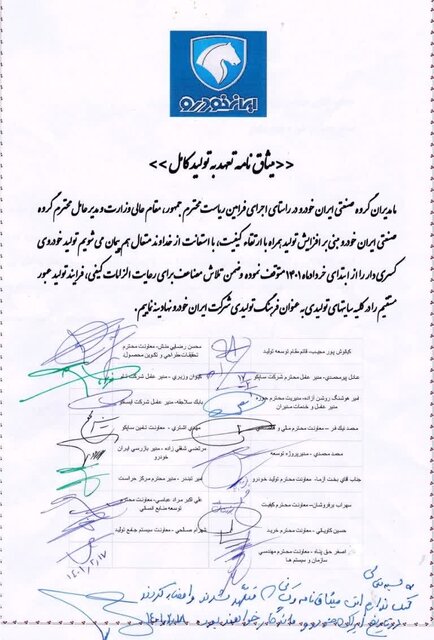 ایران خودرو
<<میثاق نامه تعهد به تولید کامل>>
ما مدیران گروه صنعتی ایران خودرو در راستای اجرای فرامین ریاست محترم جمهور، مقام عالی وزارت و مدیر عامل محترم گروه
صنعتی ایران خودرو مبنی بر افزایش تولید همراه با ارتقاء کیفیت، با استعانت از خداوند متعال هم پیمان می شویم تولید خودروی
کسری دار را از ابتدای خرداد ماه ۱۴۰۱ متوقف نموده و ضمن تلاش مضاعف برای رعایت الزامات کیفی، فرایند تولید عبور
مستقیم را در کلیه سایتهای تولیدی به عنوان فرهنگ تولیدی شرکت ایران خودرو نهادینه نماییم.
کیانوش پور مجیب، قائم مقام توسعه تولید
محسن رضایی منش، معاونت محترم
تحقیقات، طراحی و تکوین محصول
عادل پیرمحمدی، مدیر عامل محترم شرکت ساپکو
کیوان وزیری، مدیر عامل شرکت
امیر هوشنگ روشن آزاده، مدیریت محترم حوزه
مدیر عامل و خدمات مدیران
بابک سلاجقه، مدیر عامل شرکت ایسکو
محمد نیک فر – معاونت محترم مالی و
مهدی اشتری، معاونت تامین ساپکو
محمد محمدی، مدیر پروژه توسعه
مرتضی شفلی زاده، مدیر بازرسی ایران
خودرو
جناب آقای بخت آزما، معاونت محترم تولید خودرو
امیر تبندر، مدیر محترم مرکز حراست
سهراب برفروشان، معاونت محترم کیفیت
علی اکبر مراد عباسی، معاونت محترم
توسعه منابع انسانی
حسین کاویانی، معاونت محترم خرید
شهرام صالحی، معاونت سیستم جامع تولید
اصغر حق پناه، معاونت محترم مهندسی
سازمان و سیستم ها
۱۴۰۱/۲/۱۷